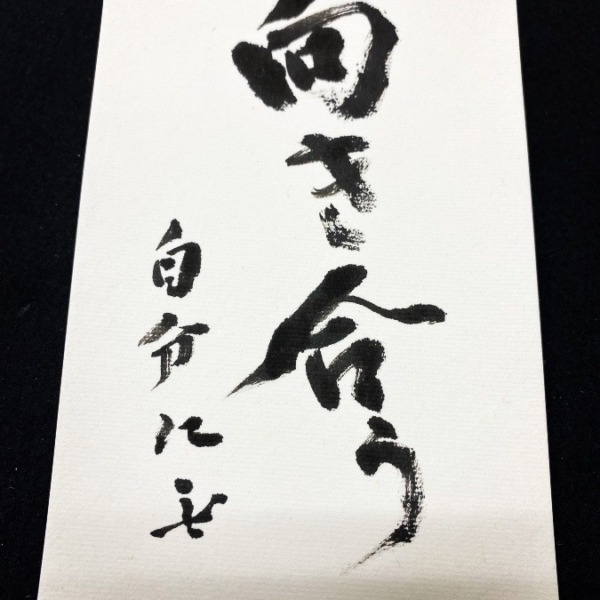 向き合う
自分にも